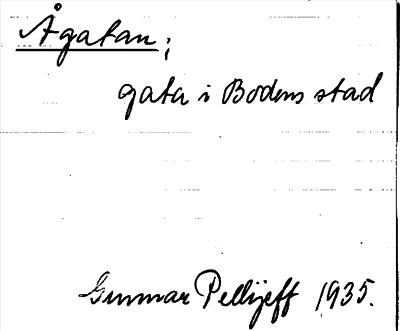 Ågatan;
gata i Bodens stad
Gunnar Pellijeff 1935.